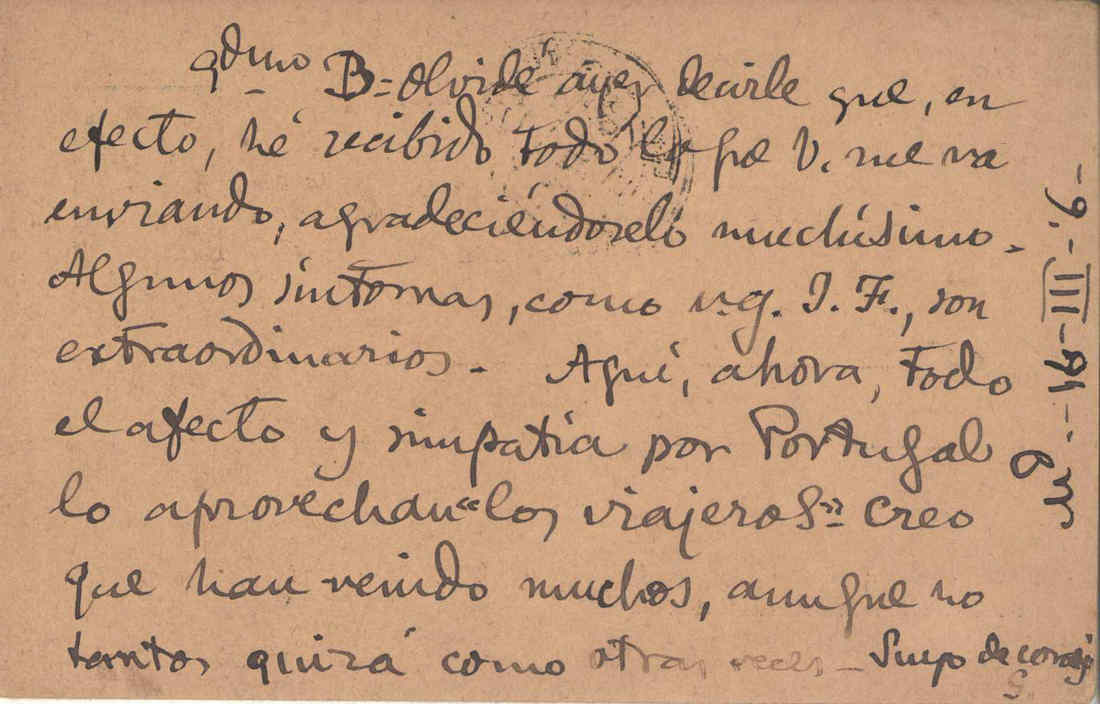 qdmo B= olvidé ayer decirle que, en
efecto, hé recibido todo lo que V. me va
enviando, agradeciéndoselo muchísimo.
Algunos síntomas, como v.g. I. F., son
extraordinarios. Aquí, ahora, todo
el afecto y simpatía por Portugal
lo aprovechan "los viajeros" Creo
que han venido muchos, aunque no
tantos quizá como otras veces - Suyo de coraz
G.
-9.-III-94-